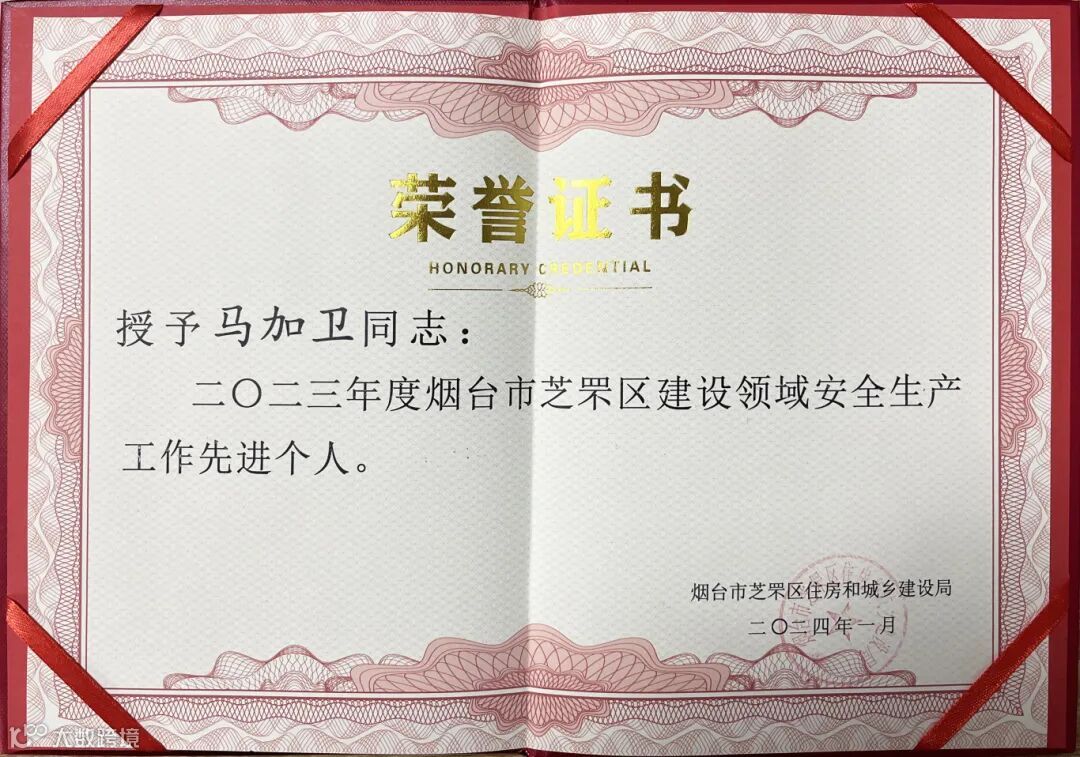 荣誉证书
HONORARY CREDENTIAL
授予马加卫同志：
二〇二三年度烟台市芝罘区建设领域安全生产
工作先进个人。
烟台市芝罘区住房和城乡建设局
二〇二四年一月
大数跨境